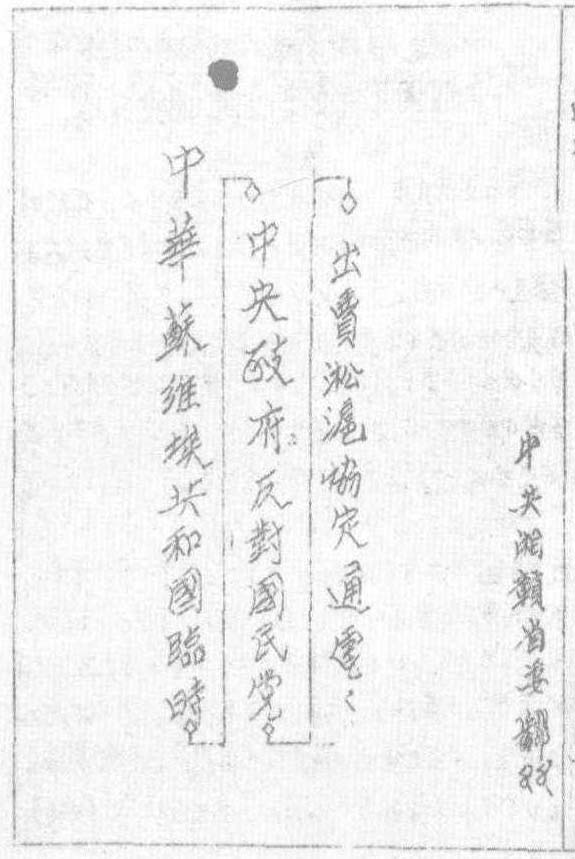 中華蘇維埃共和國臨時
中央政府反對國民党
出賣淞滬協定通電
中央湘贛省委翻